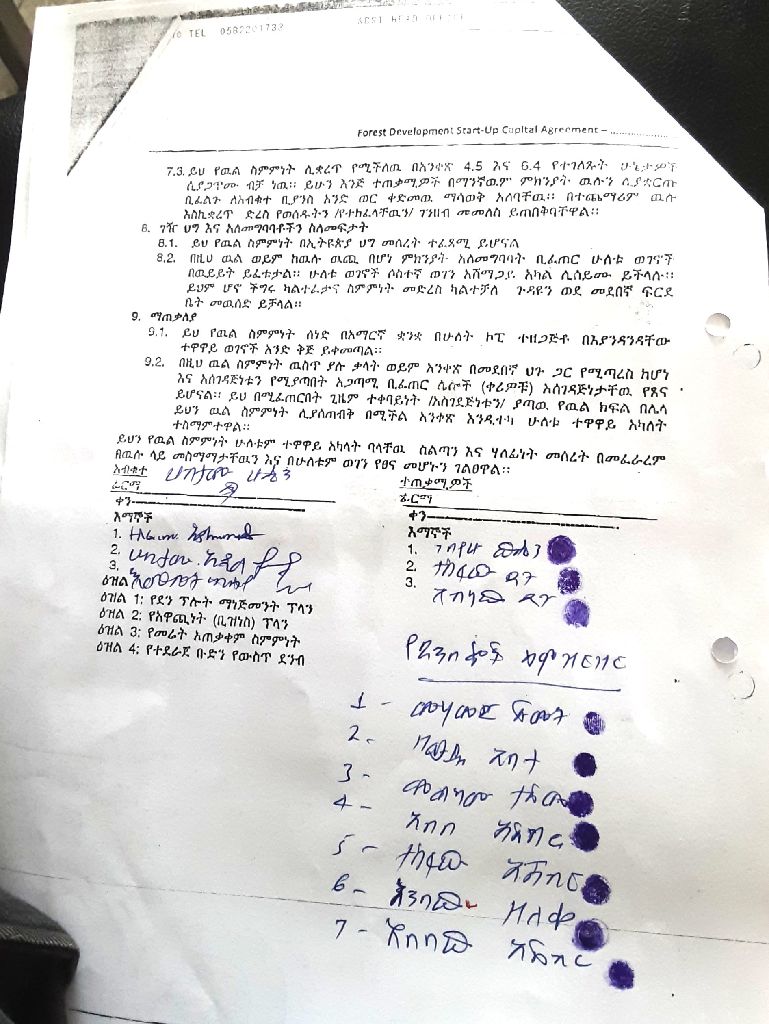 TEL 0582201733 ACSI HEAD OFFICE
Forest Development Start-Up Capital Agreement – ....................
7.3. ይህ የዉል ስምምነት ሊቋረጥ የሚችለዉ በአንቀጽ 4.5 እና 6.4 የተገለጹት ሁኔታዎች
ሲያጋጥሙ ብቻ ነዉ፡፡ ይሁን እንጅ ተጠቃሚዎች በማንኛዉም ምክንያት ዉሉን ሊያቋርጡ
ቢፈልጉ ለአብቁተ ቢያንስ አንድ ወር ቀድመዉ ማሳወቅ አለባቸዉ፡፡ በተጨማሪም ዉሉ
እስኪቋረጥ ድረስ የወሰዱትን /የተከፈላቸዉን/ ገንዘብ መመለስ ይጠበቅባቸዋል፡፡
8. ገዥ ህግ እና አለመግባባቶችን ስለመፍታት
8.1. ይህ የዉል ስምምነት በኢትዮጵያ ህግ መሰረት ተፈጻሚ ይሆናል
8.2. በዚህ ዉል ወይም ከዉሉ ዉጪ በሆነ ምክንያት አለመግባባት ቢፈጠር ሁለቱ ወገኖች
በዉይይት ይፈቱታል፡፡ ሁለቱ ወገኖች ሶስተኛ ወገን አሸማጋይ አካል ሊሰይሙ ይችላሉ፡፡
ይህም ሆኖ ችግሩ ካልተፈታና ስምምነት መድረስ ካልተቻለ ጉዳዩን ወደ መደበኛ ፍርድ
ቤት መዉሰድ ይቻላል፡፡
9. ማጠቃለያ
9.1. ይህ የዉል ስምምነት ሰነድ በአማርኛ ቋንቋ በሁለት ኮፒ ተዘጋጅቶ በእያንዳንዳቸው
ተዋዋይ ወገኖች አንድ ቅጅ ይቀመጣል፡፡
9.2. በዚህ ዉል ስምምነት ዉስጥ ያሉ ቃላት ወይም አንቀጽ በመደበኛ ህጉ ጋር የሚጣረስ ከሆነ
እና አስገዳጅነቱን የሚያጣበት አጋጣሚ ቢፈጠር ሌሎች (ቀሪዎቹ) አስገዳጅነታቸዉ የጸና
ይሆናል፡፡ ይህ በሚፈጠርበት ጊዜም ተቀባይነት /አስገደጅነቱን/ ያጣዉ የዉል ክፍል በሌላ
ይህን ዉል ስምምነት ሊያሰጠብቅ በሚችል አንቀጽ እንዲተካ ሁለቱ ተዋዋይ አካለት
ተስማምተዋል፡፡
ይህን የዉል ስምምነት ሁለቱም ተዋዋይ አካላት ባላቸዉ ስልጣን እና ሃላፊነት መሰረት በመፈራረም
በዉሉ ላይ መስማማታቸዉን እና በሁለቱም ወገን የፀና መሆኑን ገልፀዋል፡፡
አብቁተ
ፊርማ
ቀን
እማኞች
1.
2.
3.
ዕዝል
ዕዝል 1: የደን ፕሎት ማነጅመንት ፕላን
ዕዝል 2: የአዋጪነት (ቢዝነስ) ፕላን
ዕዝል 3: የመሬት አጠቃቀም ስምምነት
ዕዝል 4: የተደራጀ ቡድን የውስጥ ደንብ
ተጠቃሚዎች
ፊርማ
ቀን
እማኞች
1.
2. ተስፋው ዳኘ
3. አብላው ዳኘ
ዝርዝር
1 -
2 - አባተ
3 -
4 - አበበ
5 - ተስፋው
6 - ዘለቀ
7 - አበባው